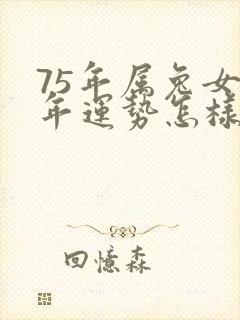 75年属兔女
年运势怎样
回憶森